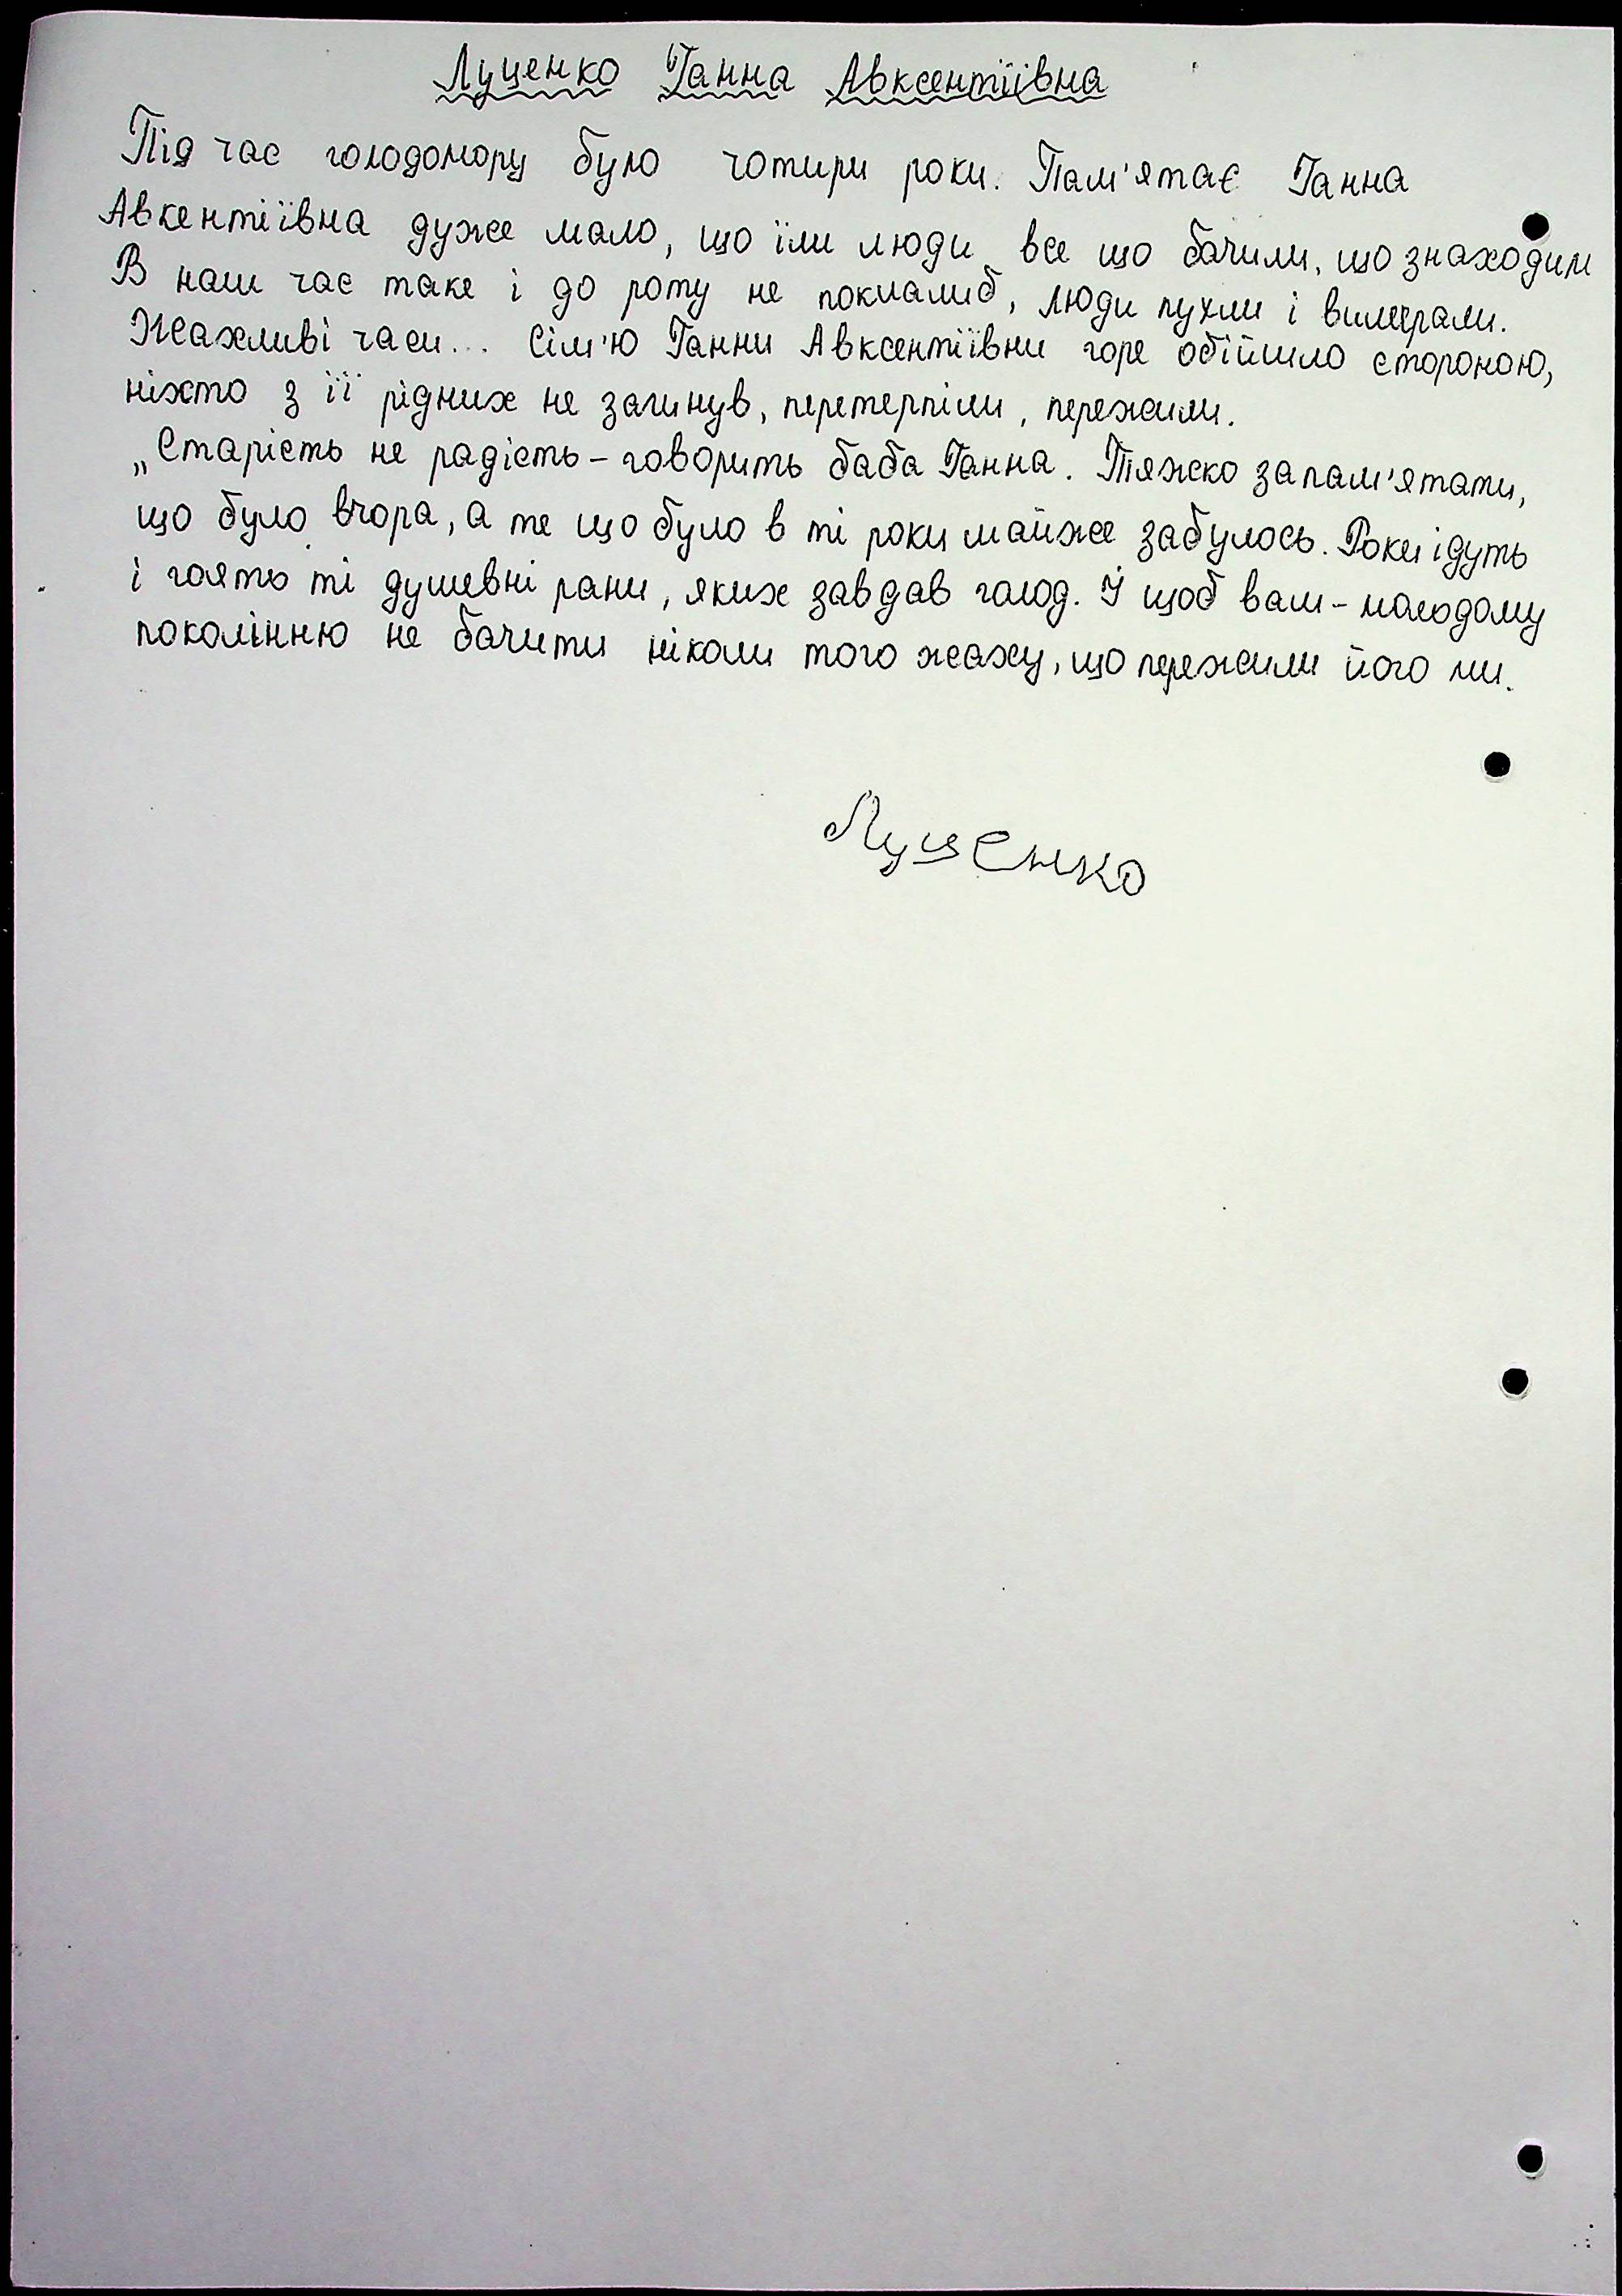 Луценко Ганна Авксентіївна
Під час голодомору було чотири роки. Пам'ятає Ганна
Авкентіївна дуже мало, що їли люди все що бачили, що знаходили
В наш час таке і до роту не поклалиб, люди пухли і вимерали.
Жахливі часи... Сім'ю Ганни Авксентіївни горе обійшло стороною,
ніхто з її рідних не загинув, перетерпіли, пережили.
„Старість не радість - говорить баба Ганна. Тяжко запам'ятати,
що було вчора, а те що було в ті роки майже забулось. Роки ідуть
і гоять ті душевні рани, яких завдав голод. Й щоб вам - молодому
поколінню не бачити ніколи того жаху, що пережили його ми.
Луценко